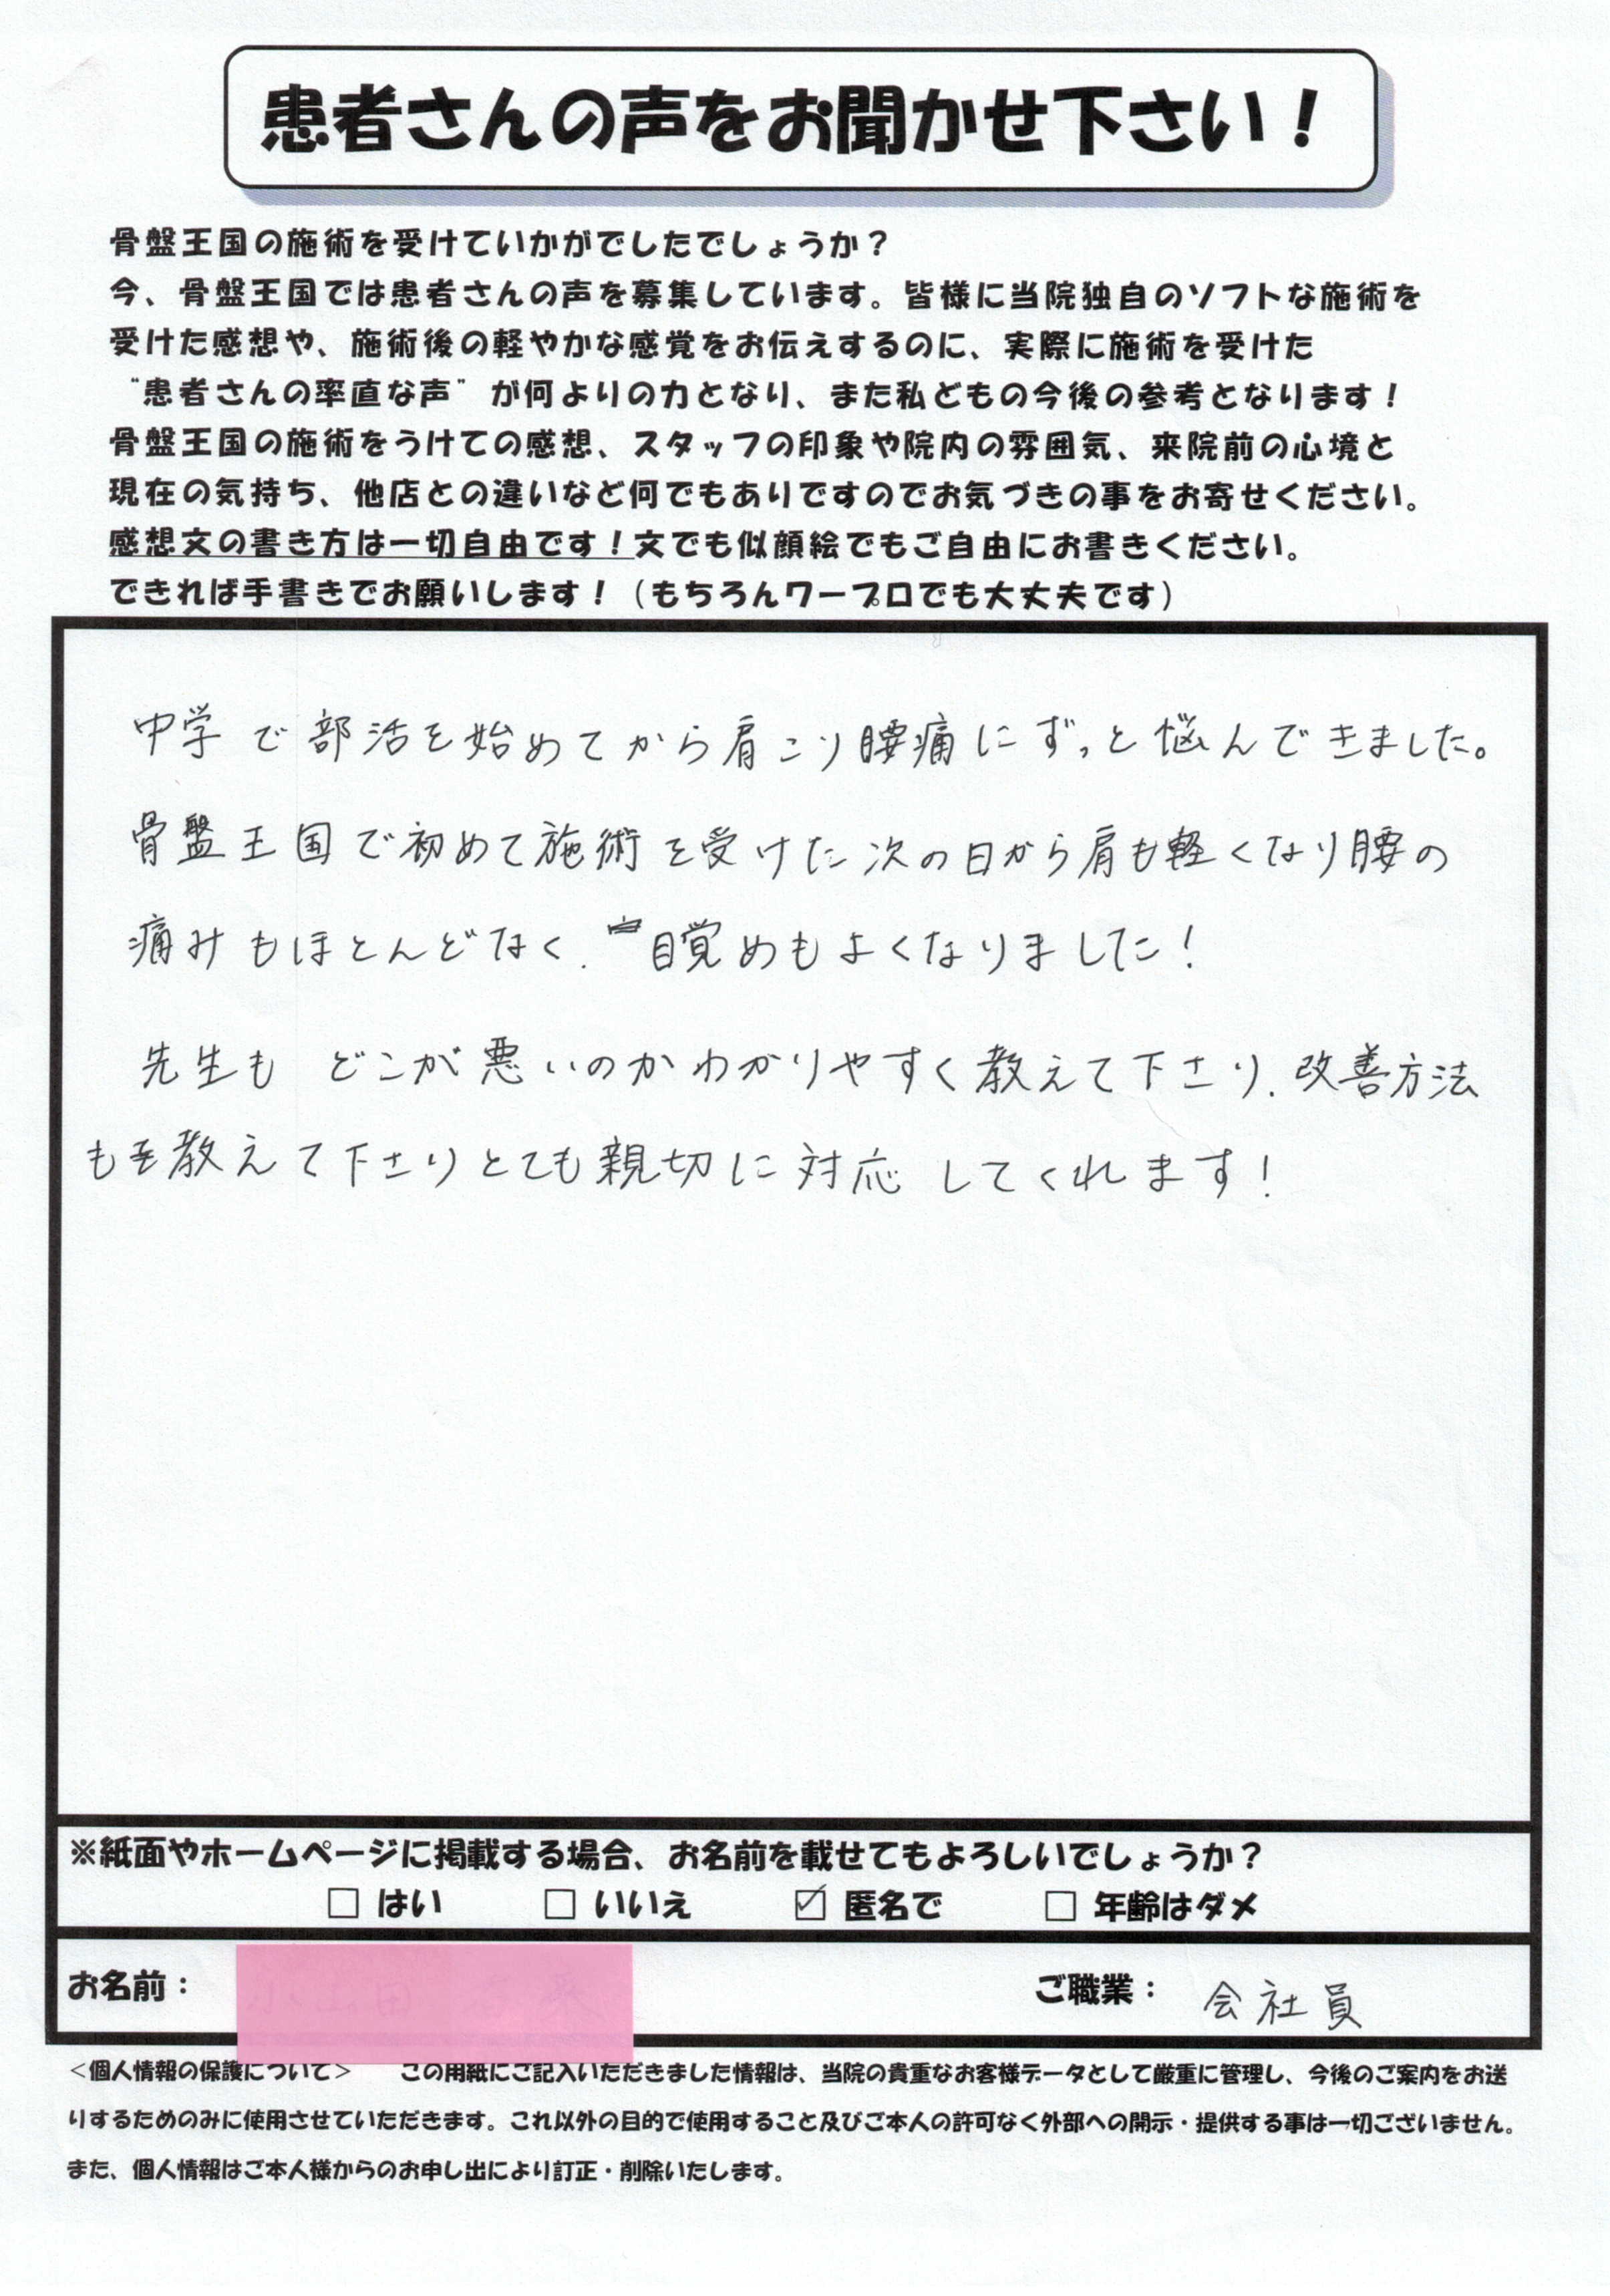 患者さんの声をお聞かせ下さい！
骨盤王国の施術を受けていかがでしたでしょうか？
今、骨盤王国では患者さんの声を募集しています。皆様に当院独自のソフトな施術を
受けた感想や、施術後の軽やかな感覚をお伝えするのに、実際に施術を受けた
“患者さんの率直な声”が何よりの力となり、また私どもの今後の参考となります！
骨盤王国の施術をうけての感想、スタッフの印象や院内の雰囲気、来院前の心境と
現在の気持ち、他店との違いなど何でもありですのでお気づきの事をお寄せください。
感想文の書き方は一切自由です！文でも似顔絵でもご自由にお書きください。
できれば手書きでお願いします！（もちろんワープロでも大丈夫です）
中学で部活を始めてから肩こり腰痛にずっと悩んできました。
骨盤王国で初めて施術を受けた次の日から肩も軽くなり腰の
痛みもほとんどなく、目覚めもよくなりました！
先生も どこが悪いのかわかりやすく教えて下さり、改善方法
も教えて下さりとても親切に対応してくれます！
※紙面やホームページに掲載する場合、お名前を載せてもよろしいでしょうか？
□ はい □ いいえ ☑ 匿名で □ 年齢はダメ
お名前： ご職業： 会社員
＜個人情報の保護について＞ この用紙にご記入いただきました情報は、当院の貴重なお客様データとして厳重に管理し、今後のご案内をお送
りするためのみに使用させていただきます。これ以外の目的で使用すること及びご本人の許可なく外部への開示・提供する事は一切ございません。
また、個人情報はご本人様からのお申し出により訂正・削除いたします。